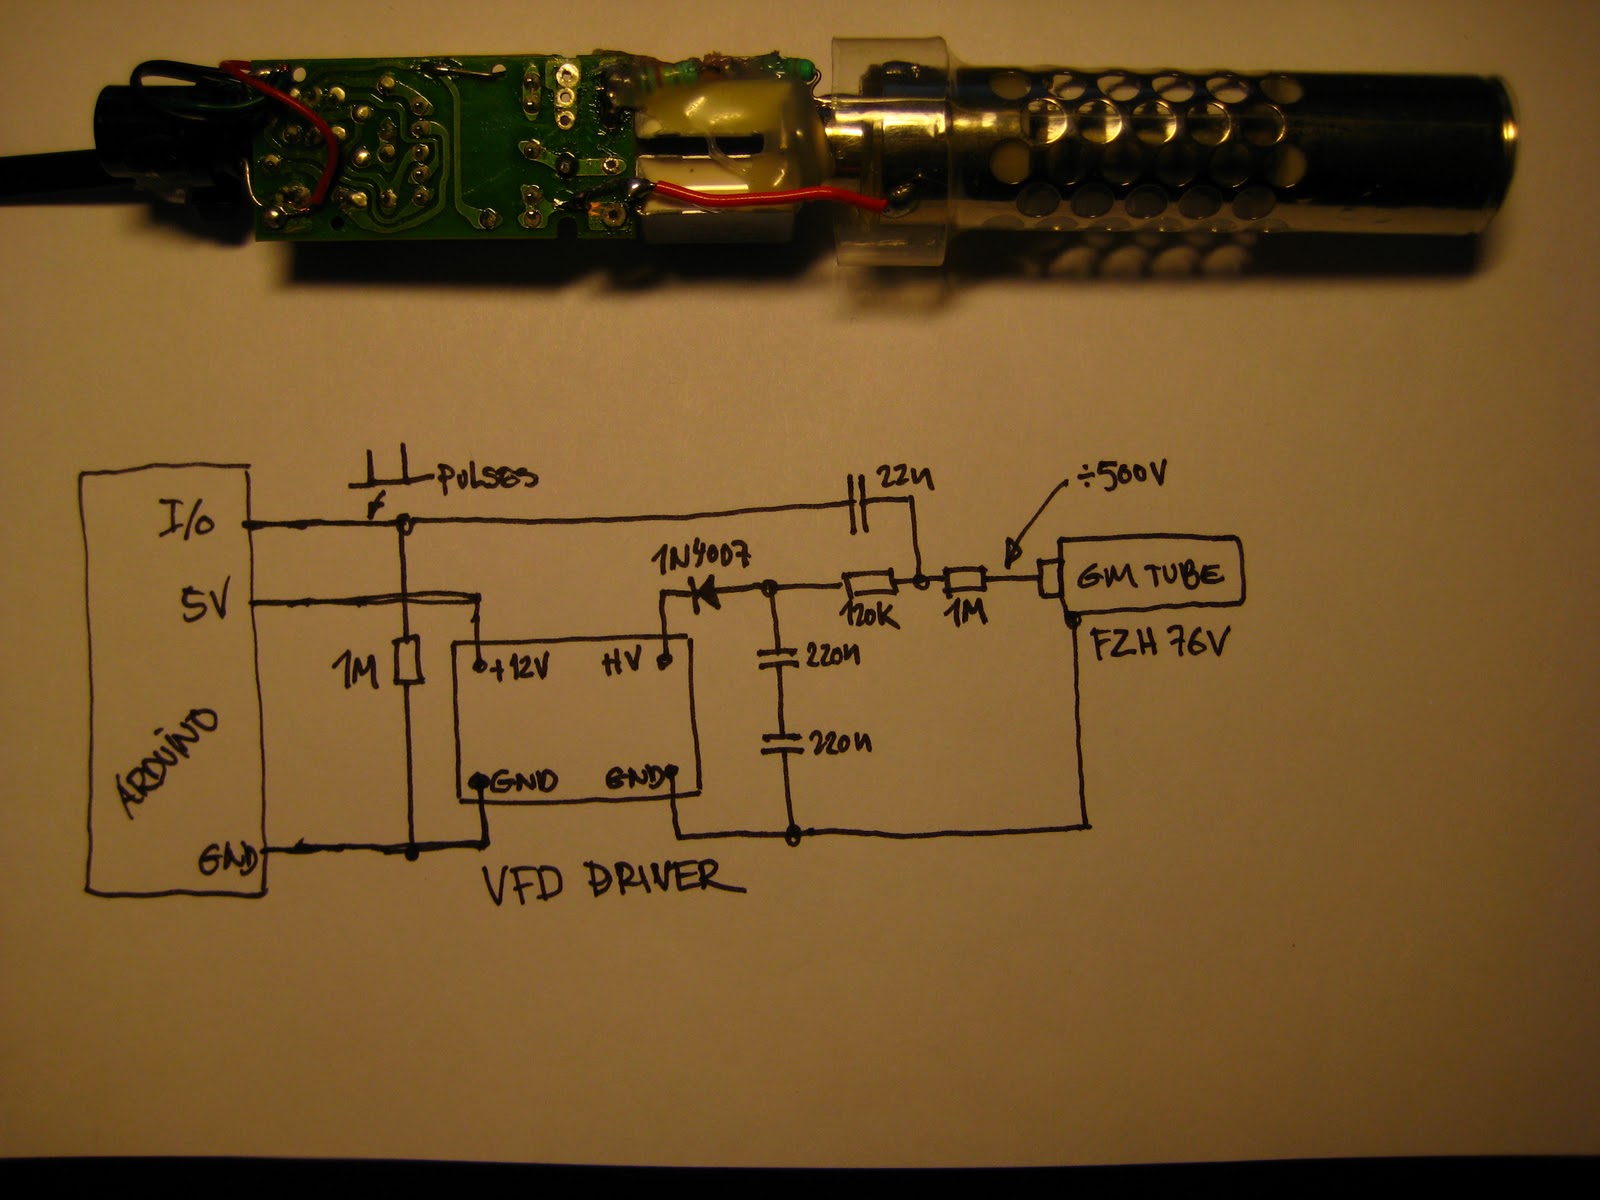 PULSES
22n
÷500V
I/o
1N4007
GM TUBE
5V
120K
1M
FZH 76V
1M
+12V
HV
220n
220n
ARDUINO
GND
GND
GND
VFD DRIVER